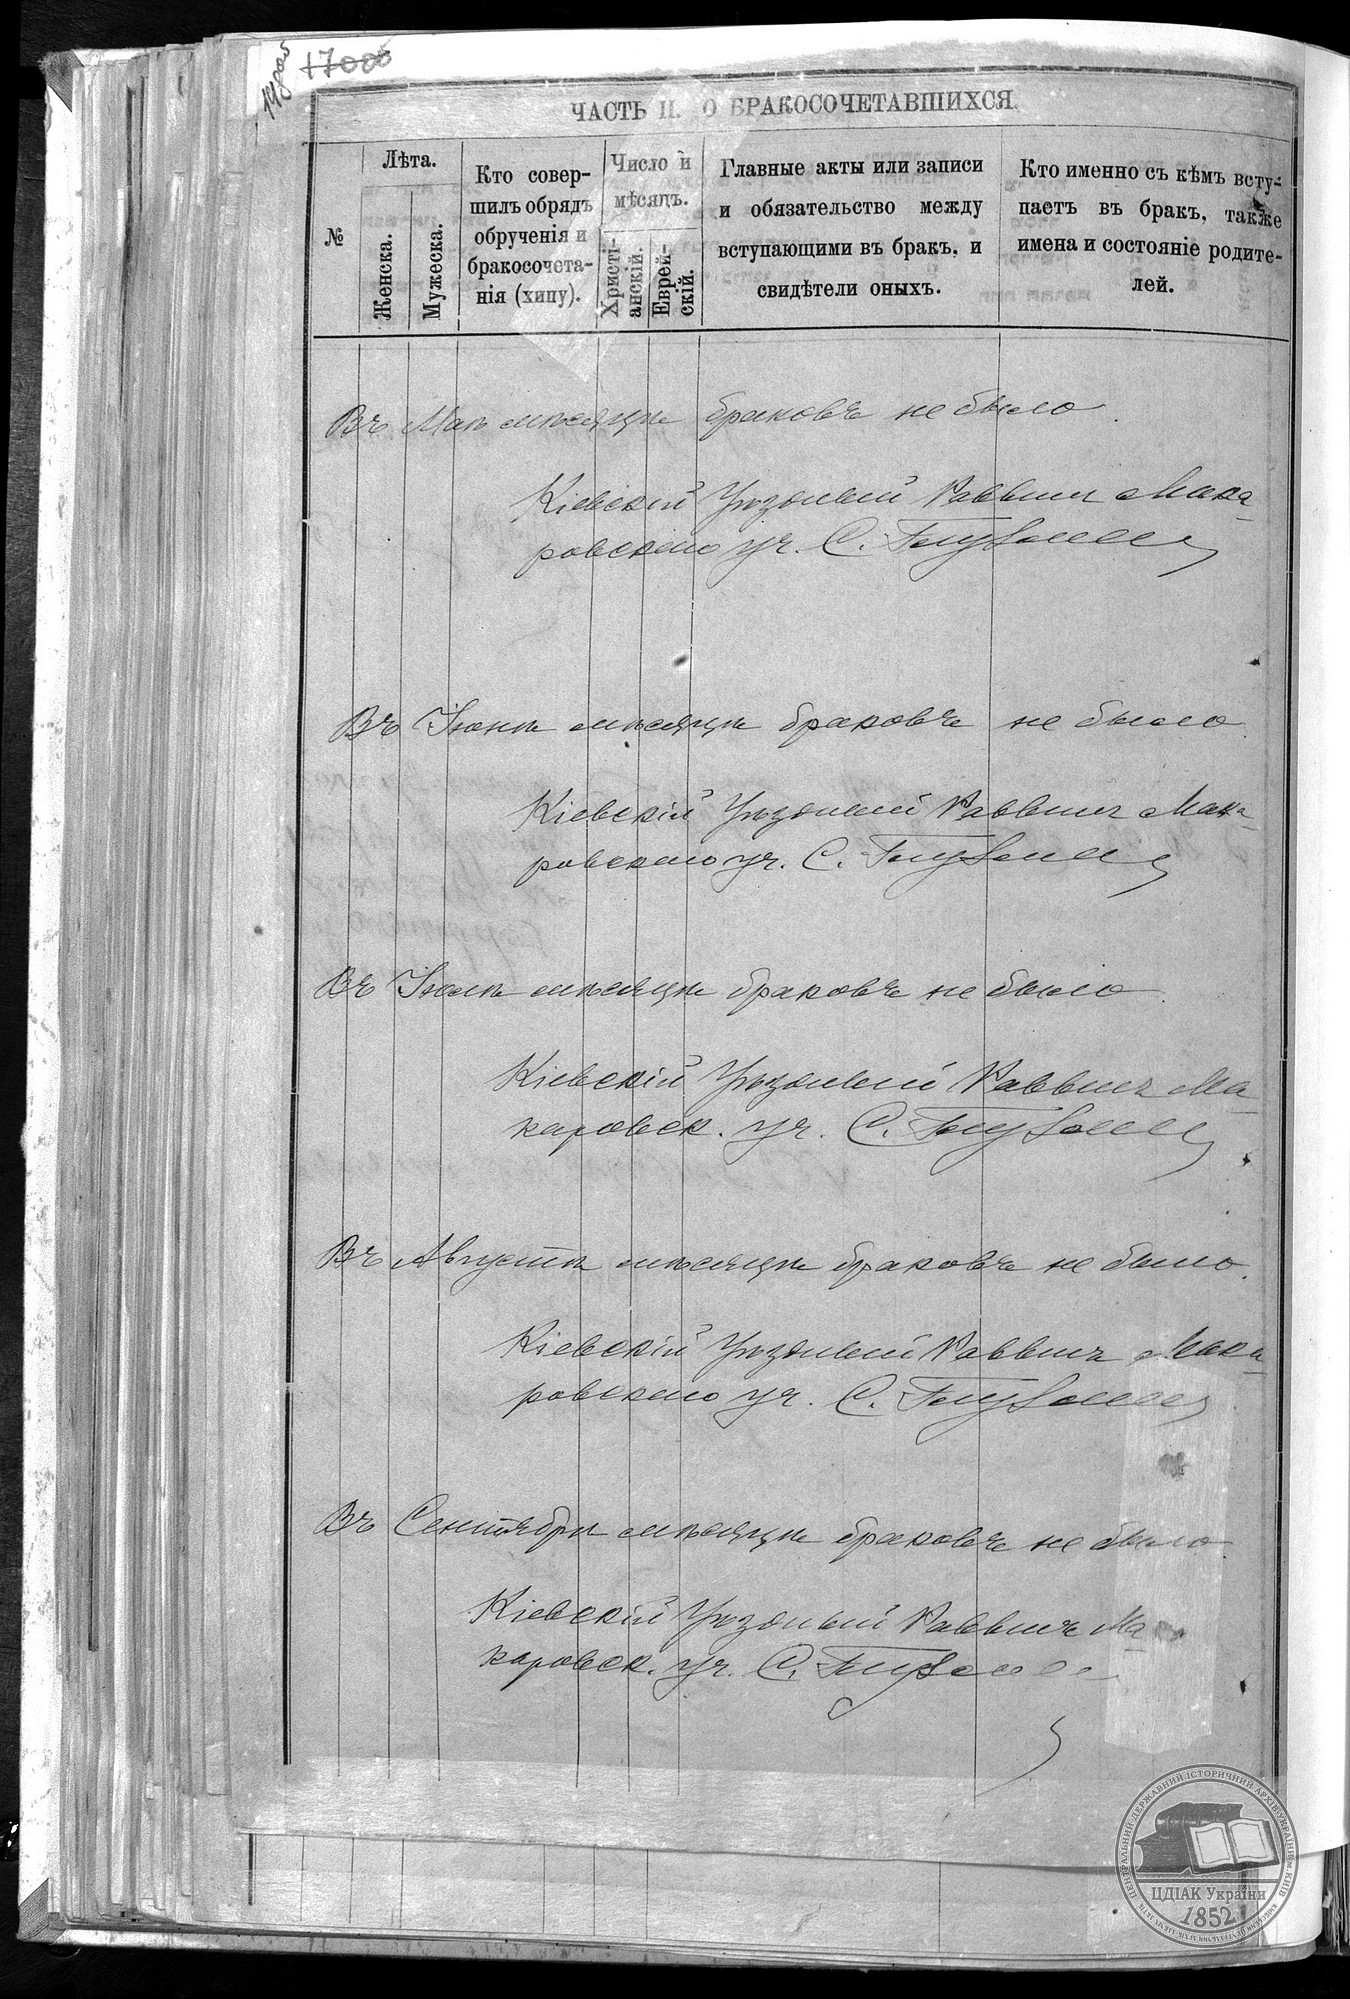 17000
ЧАСТЬ II. О БРАКОСОЧЕТАВШИХСЯ.
№
Лѣта.
Женска.
Мужеска.
Кто совер-
шилъ обрядъ
обрученія и
бракосочета-
нія (хипу).
Число и
мѣсяцъ.
Христі-
анскій.
Еврей-
скій.
Главные акты или записи
и обязательство между
вступающими въ бракъ, и
свидѣтели оныхъ.
Кто именно съ кѣмъ всту-
паетъ въ бракъ, также
имена и состояніе родите-
лей.
Въ Маѣ мѣсяцѣ браковъ не было.
Кіевскій Уѣздный Раввинъ Мака-
ровскаго уч. С.
Въ Іюнѣ мѣсяцѣ браковъ не было.
Кіевскій Уѣздный Раввинъ Мака-
ровскаго уч. С.
Въ Іюлѣ мѣсяцѣ браковъ не было.
Кіевскій Уѣздный Раввинъ Ма-
каровск. уч. С.
Въ Августѣ мѣсяцѣ браковъ не было.
Кіевскій Уѣздный Раввинъ Мака-
ровскаго уч. С.
Въ Сентябрѣ мѣсяцѣ браковъ не было.
Кіевскій Уѣздный Раввинъ Ма-
каровск. уч. С.
ЦЕНТРАЛЬНИЙ ДЕРЖАВНИЙ ІСТОРИЧНИЙ АРХІВ УКРАЇНИ, М. КИЇВ
ЦДІАК України
1852